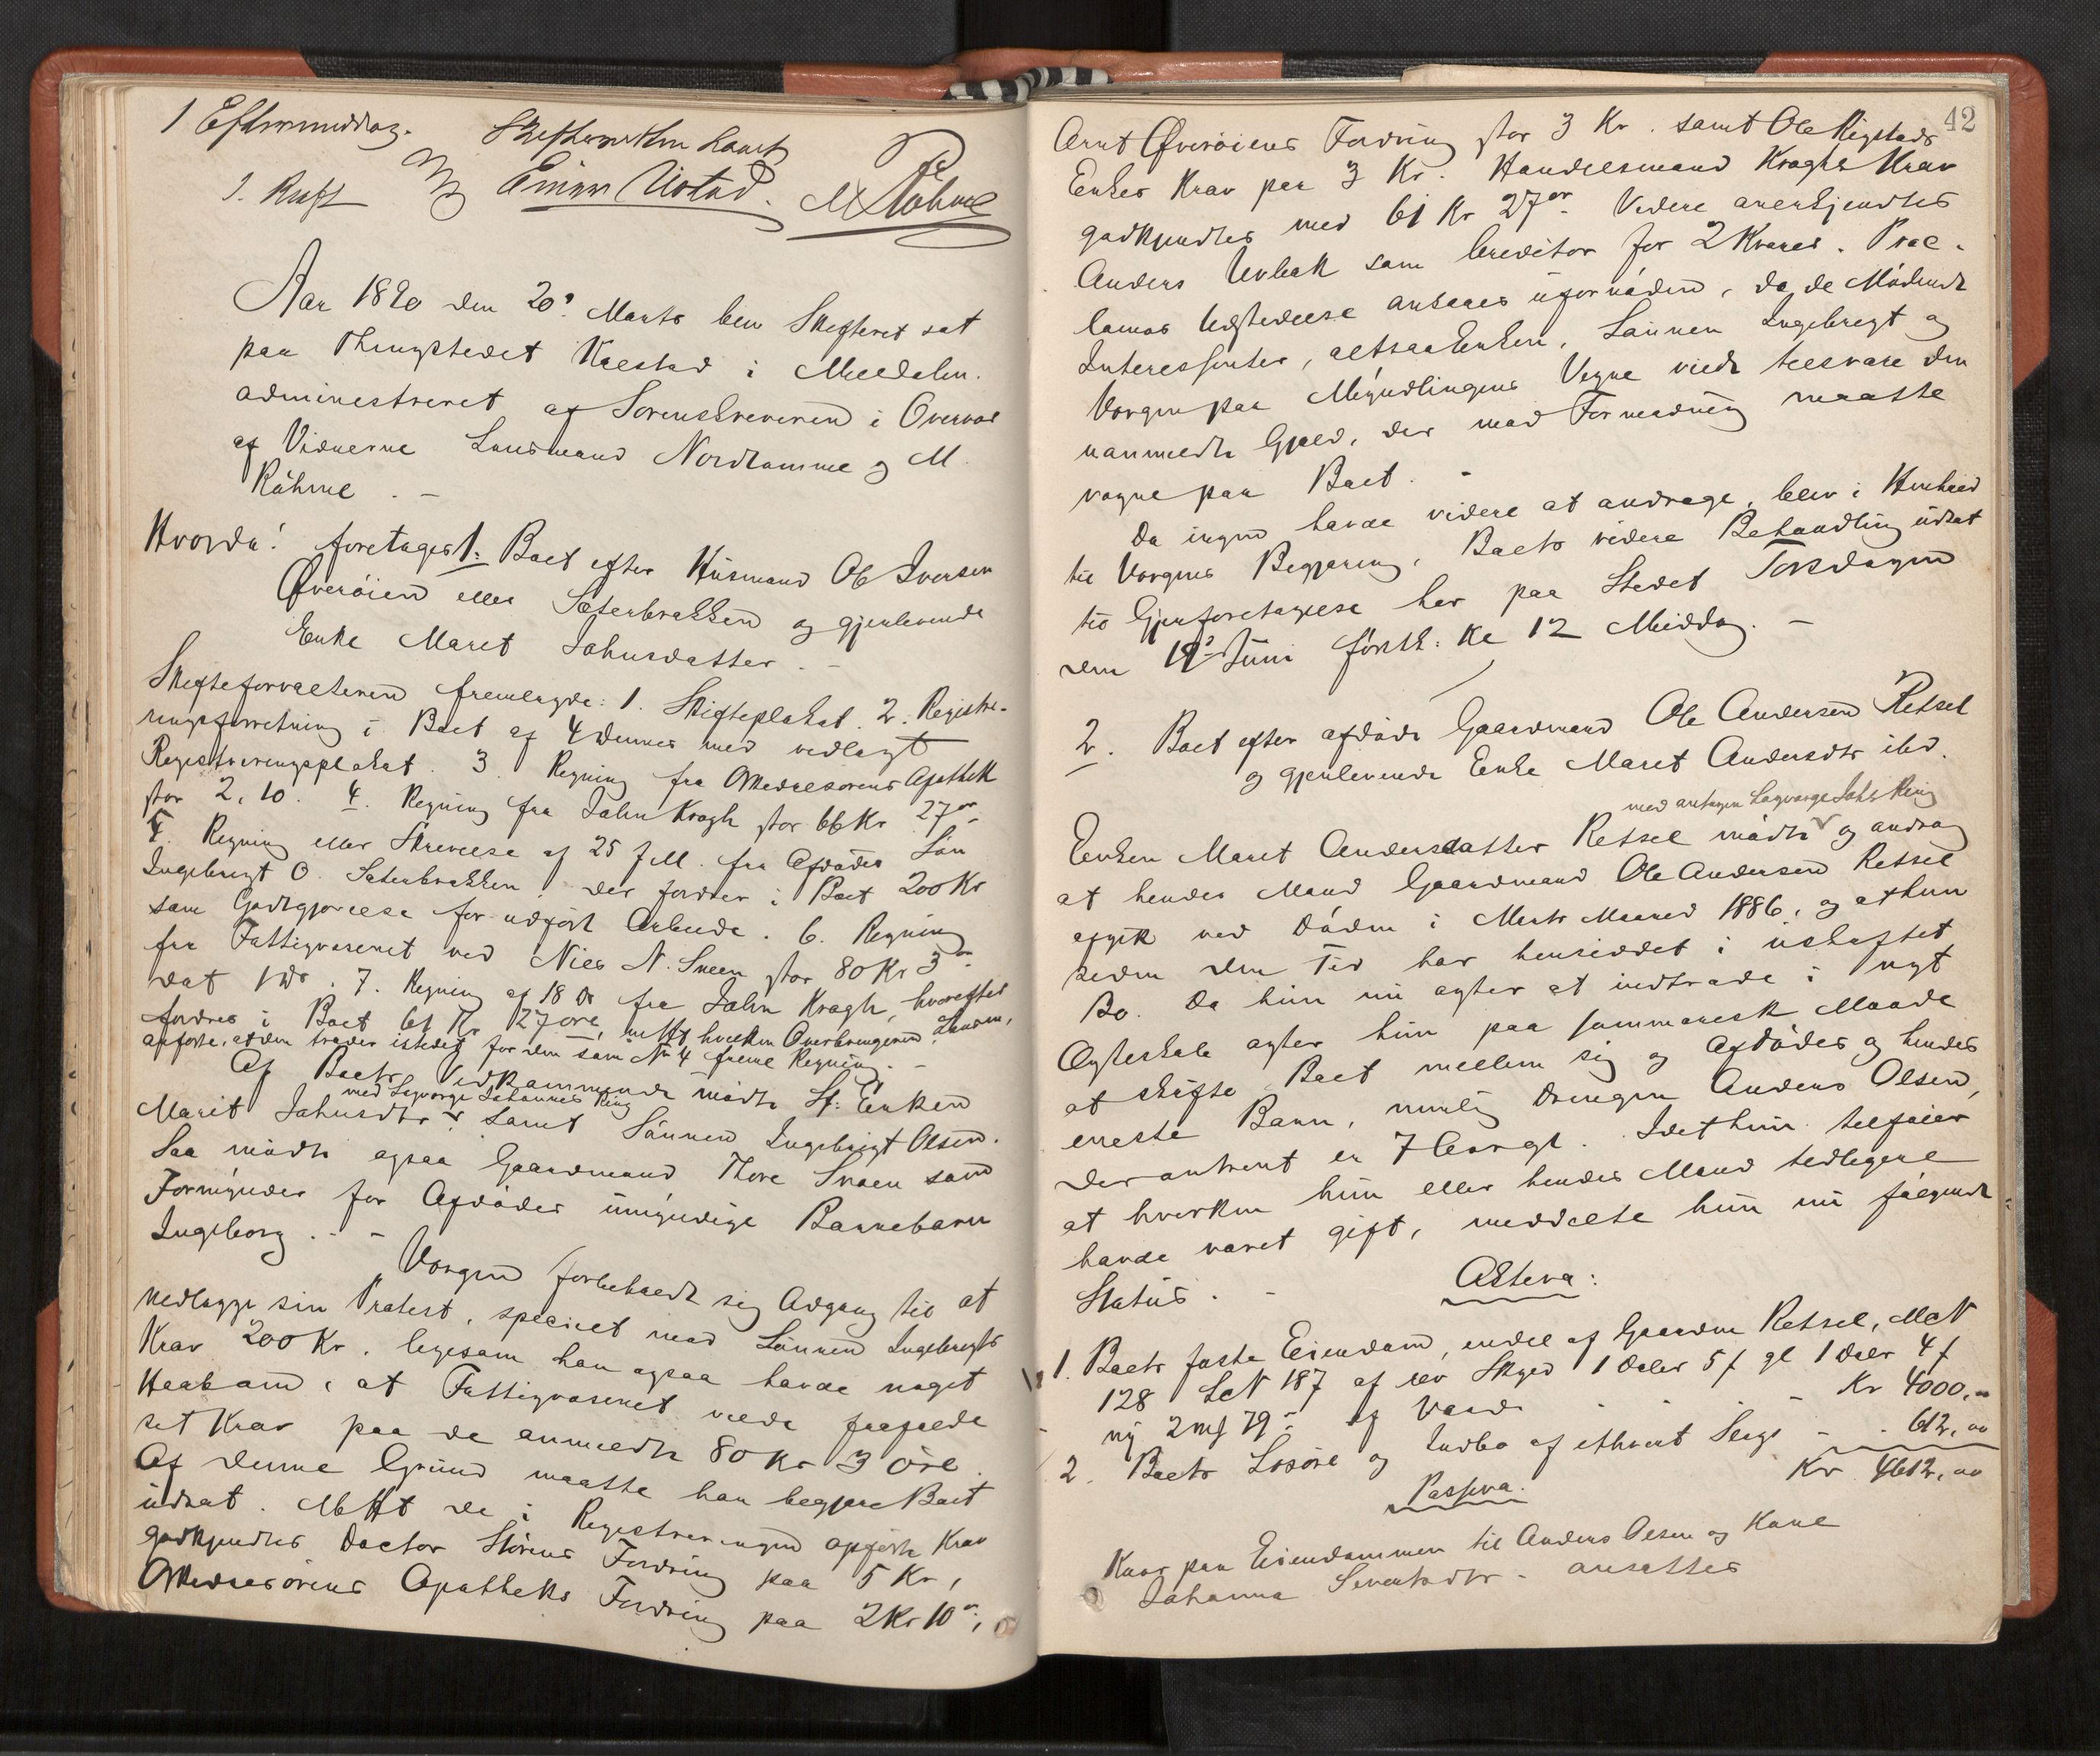 1 Eftermiddag. Skifteretten hævet
J. Kreft Einar Ustad. M Röhme
Aar 1890 den 20de Marts blev Skifteret sat
paa Thingstedet Kaestad i Meldalen.
administreret af Sorenskriveren i Overvær
af Vidnerne Lensmand Nordtømme og M
Röhme . –
Hvorda: foretages 1: Boet efter Husmand Ole Iversen
Øverøien eller Sæterbrækken og gjenlevende
Enke Marit Johnsdatter. –
Skifteforvalteren fremlagde: 1. Skifteplakat. 2. Registre-
ringsforretning i Boet af 4 dennes med vedlagt
Registreringsplakat. 3. Regning fra Orkedalsørens Apothek
stor 2,10. 4. Regning fra John Kragh stor 66 Kr 27 ør.
5. Regning eller Skrivelse af 25 f.M. fra Afdødes Søn
Ingebrigt O. Sæterbrækken der fordrer i Boet 200 Kr
som Godtgjørelse for udført Arbeide. 6. Regning
fra Fattigvæsenet ved Nils N. Sneen stor 80 Kr 3 ør
dat 1 ds. 7. Regning af 18 ds fra John Kragh, hvorefter
fordres i Boet 61 Kr 27 øre, m Hs hvilken Overbringeren, Lensm,
anførte, at den træder istedet for den som No 4 freml Regning. –
Af Boets Vedkommende mødte St: Enken
med Lagværge Johannes Ring
Marit Johnsdtr v samt Sønnen Ingebrigt Olsen.
Saa mødte ogsaa Gaardmand Thore Snoen som
Formynder for Afdødes umyndige Barnebarn
Ingeborg. . –
Vergen forbeholdt sig Adgang til at
nedlægge sin Protest, specielt mod Sønnen Ingebrigts
Krav 200 Kr. ligesom han ogsaa havde noget
Haab om, at Fattigvæsenet vilde frafalde
sit Krav paa de anmeldte 80 Kr 3 Øre.
Af denne Grund maatte han begjære Boet
udsat. M Ht de i Registreringen opførte Krav
godkjendtes Doctor Störens Fordring paa 5 Kr,
Orkedalsörens Apotheks Fordring paa 2 Kr 10 ør,
42
Arnt Øverøiens Fordring stor 3 Kr. samt Ole Rigstads
Enkes Krav paa 3 Kr. Handelsmand Kraghs Krav
godkjendtes med 61 Kr 27 ør. Videre anerkjendtes
Anders Uvbak som Creditor for 2 Kroner. Proc-
lamas Udstedelse ansaaes ufornöden, da de Mödende
Interessenter, altsaa Enken, Sønnen Ingebrigt og
Vergen paa Myndlingens Vegne vilde tilsvare den
uanmeldte Gjæld, der mod Formodning maatte
vogne paa Boet. –
Da ingen havde videre at andrage, blev i Henhold
til Vergens Begjæring, Boets videre Behandling udsat
til Gjenforetagelse her paa Stedet Torsdagen
den 19de Juni førstk: Kl 12 Middag. –
2. Boet efter afdöde Gaardmand Ole Andersen Retsel
og gjenlevende Enke Marit Andersdtr ibd.
med antagen Lagværge Johs Ring
Enken Marit Andersdatter Retsel mödte v og androg
at hendes Mand Gaardmand Ole Andersen Retsel
afgik ved Döden i Marts Maaned 1886, og at hun
siden den Tid har hensiddet i uskiftet
Bo. Da hun nu agter at indtræde i nyt
Ægteskab agter hun paa summarisk Maade
at skifte Boet mellem sig og Afdödes og hendes
eneste Barn, nemlig Drengen Anders Olsen,
der omtrent er 7 Aar gl. Idet hun tilföier
at hverken hun eller hendes Mand tidligere
havde været gift, meddelte hun nu fölgende
Status. – Aktiva:
1. Boets faste Eiendom, endel af Gaarden Retsel, Mat N
128 L N 187 af rev Skyld 1 Daler 5 f gl 1 Daler 4 f
ny 2 mf 79 ø af Værdi - - - Kr 4000,00
2. Boets Løsøre og Indbo af ethvert Slags - - 612,00
Kr 4612,00
Passiva.
Kaar paa Eiendommen til Anders Olsen og Kone
Johanna Sivertsdtr - ansattes